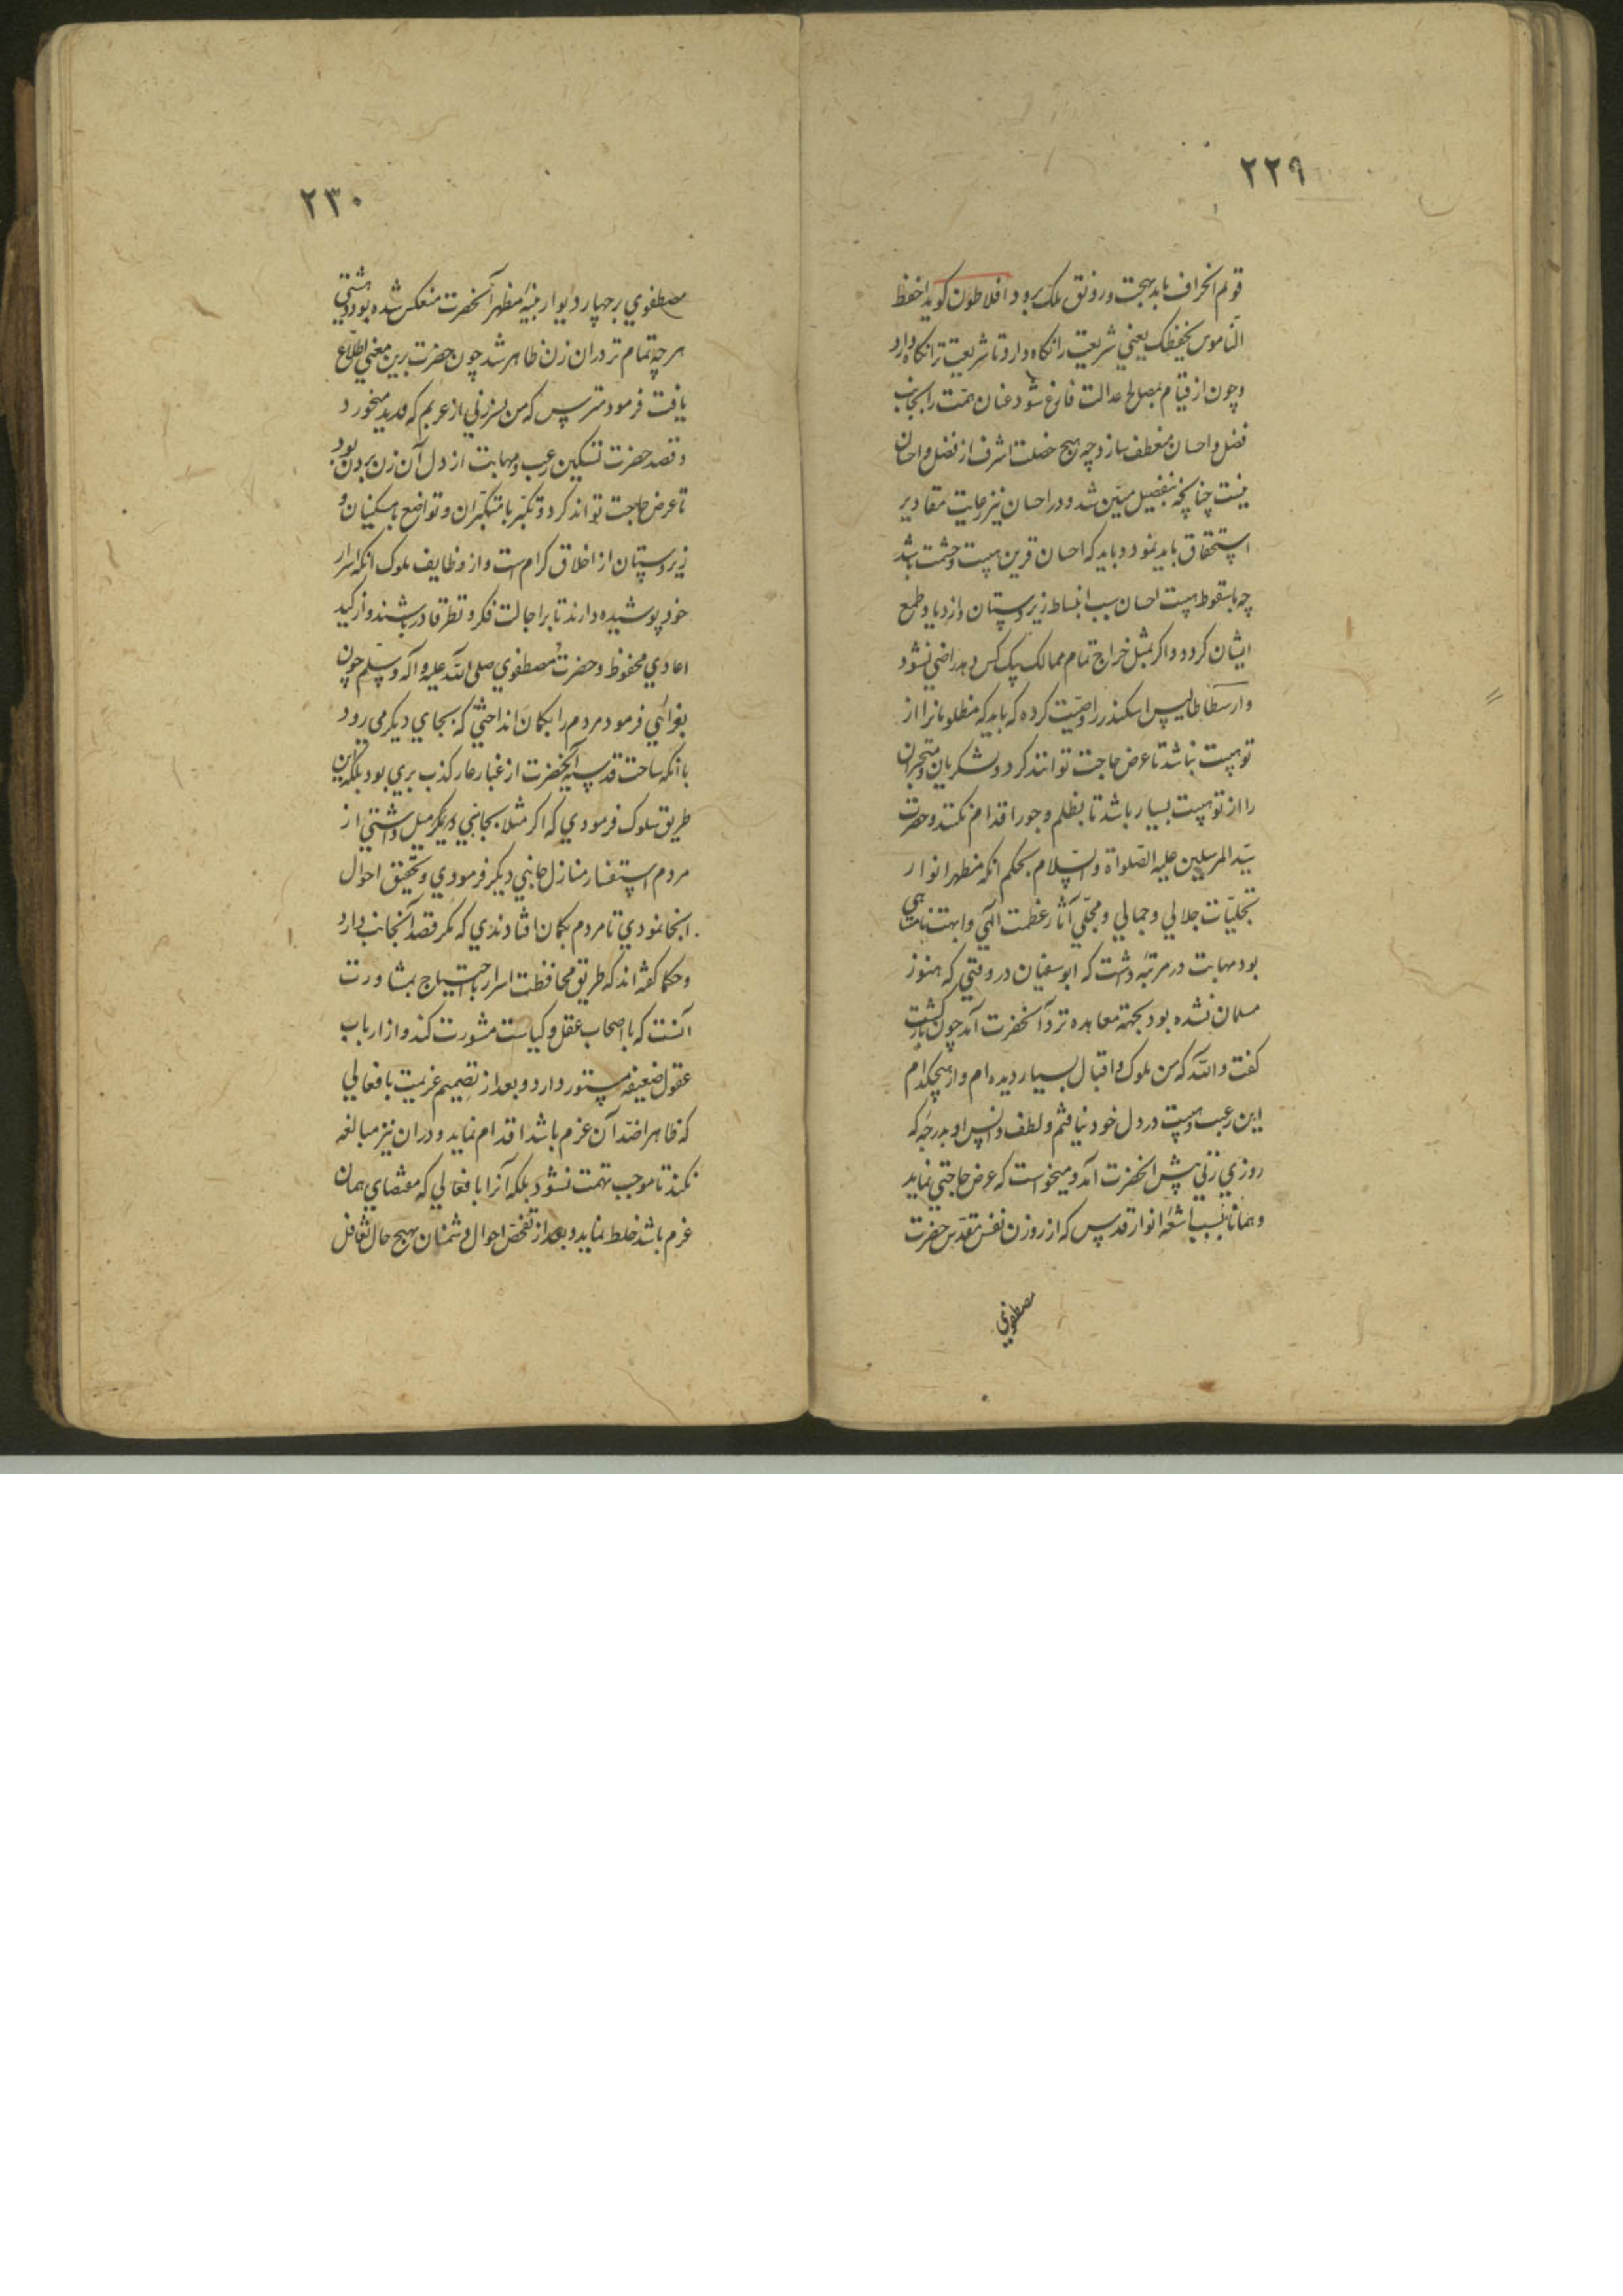 ۲۲۹
قویم انحراف یابد بهجت و رونق ملک برود افلاطون کوید احفظ
الناموس یحفظک یعنی شریعت را نکاه دار تا شریعت ترا نکاه دارد
و چون از قیام بمصالح عدالت فارغ شود عنان همت را بجانب
فضل و احسان منعطف سازد چه هیچ خصلت اشرف از فضل و احسان
نیست چنانچه بتفصیل مبیّن شد و در احسان نیز رعایت مقادیر
استحقاق باید نمود و باید که احسان قرین هیبت و حشمت باشد
چه با سقوط هیبت احسان سبب انبساط زیردستان و ازدیاد طمع
ایشان کردد و اکر بمثل خراج تمام ممالک بیک کس دهد راضی نشود
و ارسطاطالیس اسکندر را وصیّت کرده که باید که مظلومانرا از
تو هیبت نباشد تا عرض حاجت توانند کرد و لشکریان و متجبران
را از تو هیبت بسیار باشد تا بظلم و جور اقدام نکنند و حضرت
سیّد المرسلین علیه الصّلواة و السّلام بحکم انکه مظهر انوار
تجلیّات جلالی و جمالی و مجلّی آثار عظمت الهی و ابهت نامتناهی
بود مهابت در مرتبۀ داشت که ابو سفیان در وقتی که هنوز
مسلمان نشده بود بجهة معاهده نزد آنحضرت آمد چون بازکشت
کفت و اللّه که من ملوک و اقبال بسیار دیده ام و از هیچکدام
این رعب و هیبت در دل خود نیافتم و لطف و انس او بدرجۀ که
روزی زنی پیش انحضرت آمد و میخواست که عرض حاجتی نماید
و همانا بسبب اشعّۀ انوار قدس که از روزن نفس مقدّس حضرت
مصطفوی
۲۳۰
مصطفوی بر چهار دیوار بنیۀ مظهر آنحضرت منعکس شده بود دهشتی
هر چه تمام تر در ان زن ظاهر شد چون حضرت برین معنی اطّلاع
یافت فرمود مترس که من پسر زنی از عربم که قدید میخورد
و قصد حضرت تسکین رعب و مهابت از دل آن زن بردن بود
تا عرض حاجت تواند کرد و تکبّر با متکبّران و تواضع با مسکینان و
زیردستان از اخلاق کرام است و از وظایف ملوک انکه اسرار
خود پوشیده دارند تا بر اجالت فکر و نظر قادر باشند و از کید
اعادی محفوظ و حضرت مصطفوی صلی اللّه علیه و آله و سلّم چون
بغزائی فرمود مردم را بکمان انداختی که بجای دیکر می رود
با انکه ساحت قدسیه آنحضرت از غبار عار کذب بری بود بلکه این
طریق سلوک فرمودی که اکر مثلا بجانبی دیکر میل داشتی از
مردم استفسار منازل جانبی دیکر فرمودی و تحقیق احوال
انجا نمودی تا مردم بکمان افتادندی که مکر قصد آنجانب دارد
و حکما کفته اند که طریق محافظت اسرار با احتیاج بمشاورت
آنست که با اصحاب عقل و کیاست مشورت کند و از ارباب
عقول ضعیفه مستور دارد و بعد از تصمیم عزیمت بافعالی
که ظاهرا ضدّ آن عزم باشد اقدام نماید و در ان نیز مبالغه
نکند تا موجب تهمت نشود بلکه آنرا با فعالی که مقتضای همان
عزم باشد خلط نماید و بعد از تفحّص احوال دشمنان بهیچ حال تغافل